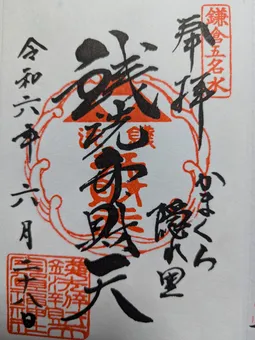 鎌倉五名水
奉拝
かまくら
隠れ里
銭洗弁財天
令和六年六月二十八日